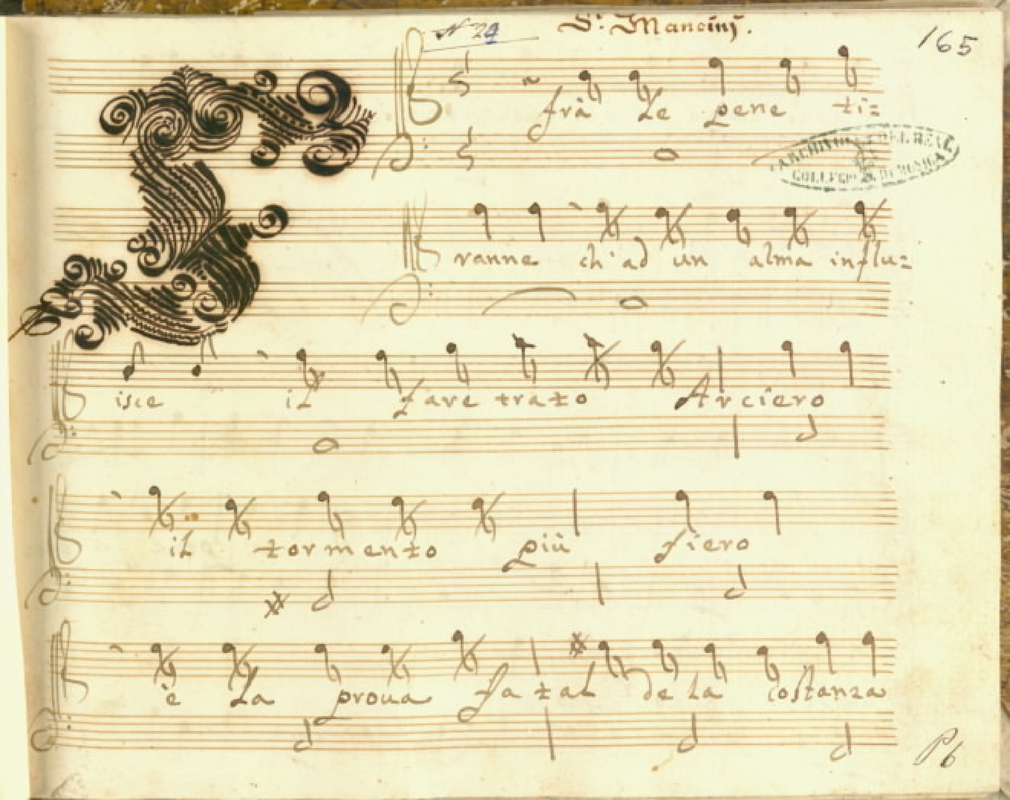 N 24 Sr. Mancinj. 165
frà Le pene ti=
ARCHIVIO DEL REAL COLLEGIO DI MUSICA
ranne ch'ad un alma influ=
isce il faretrato Arciero
il tormento più fiero
è La proua fatal de la costanza
P6